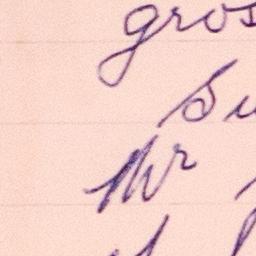 gros
Su
Mr